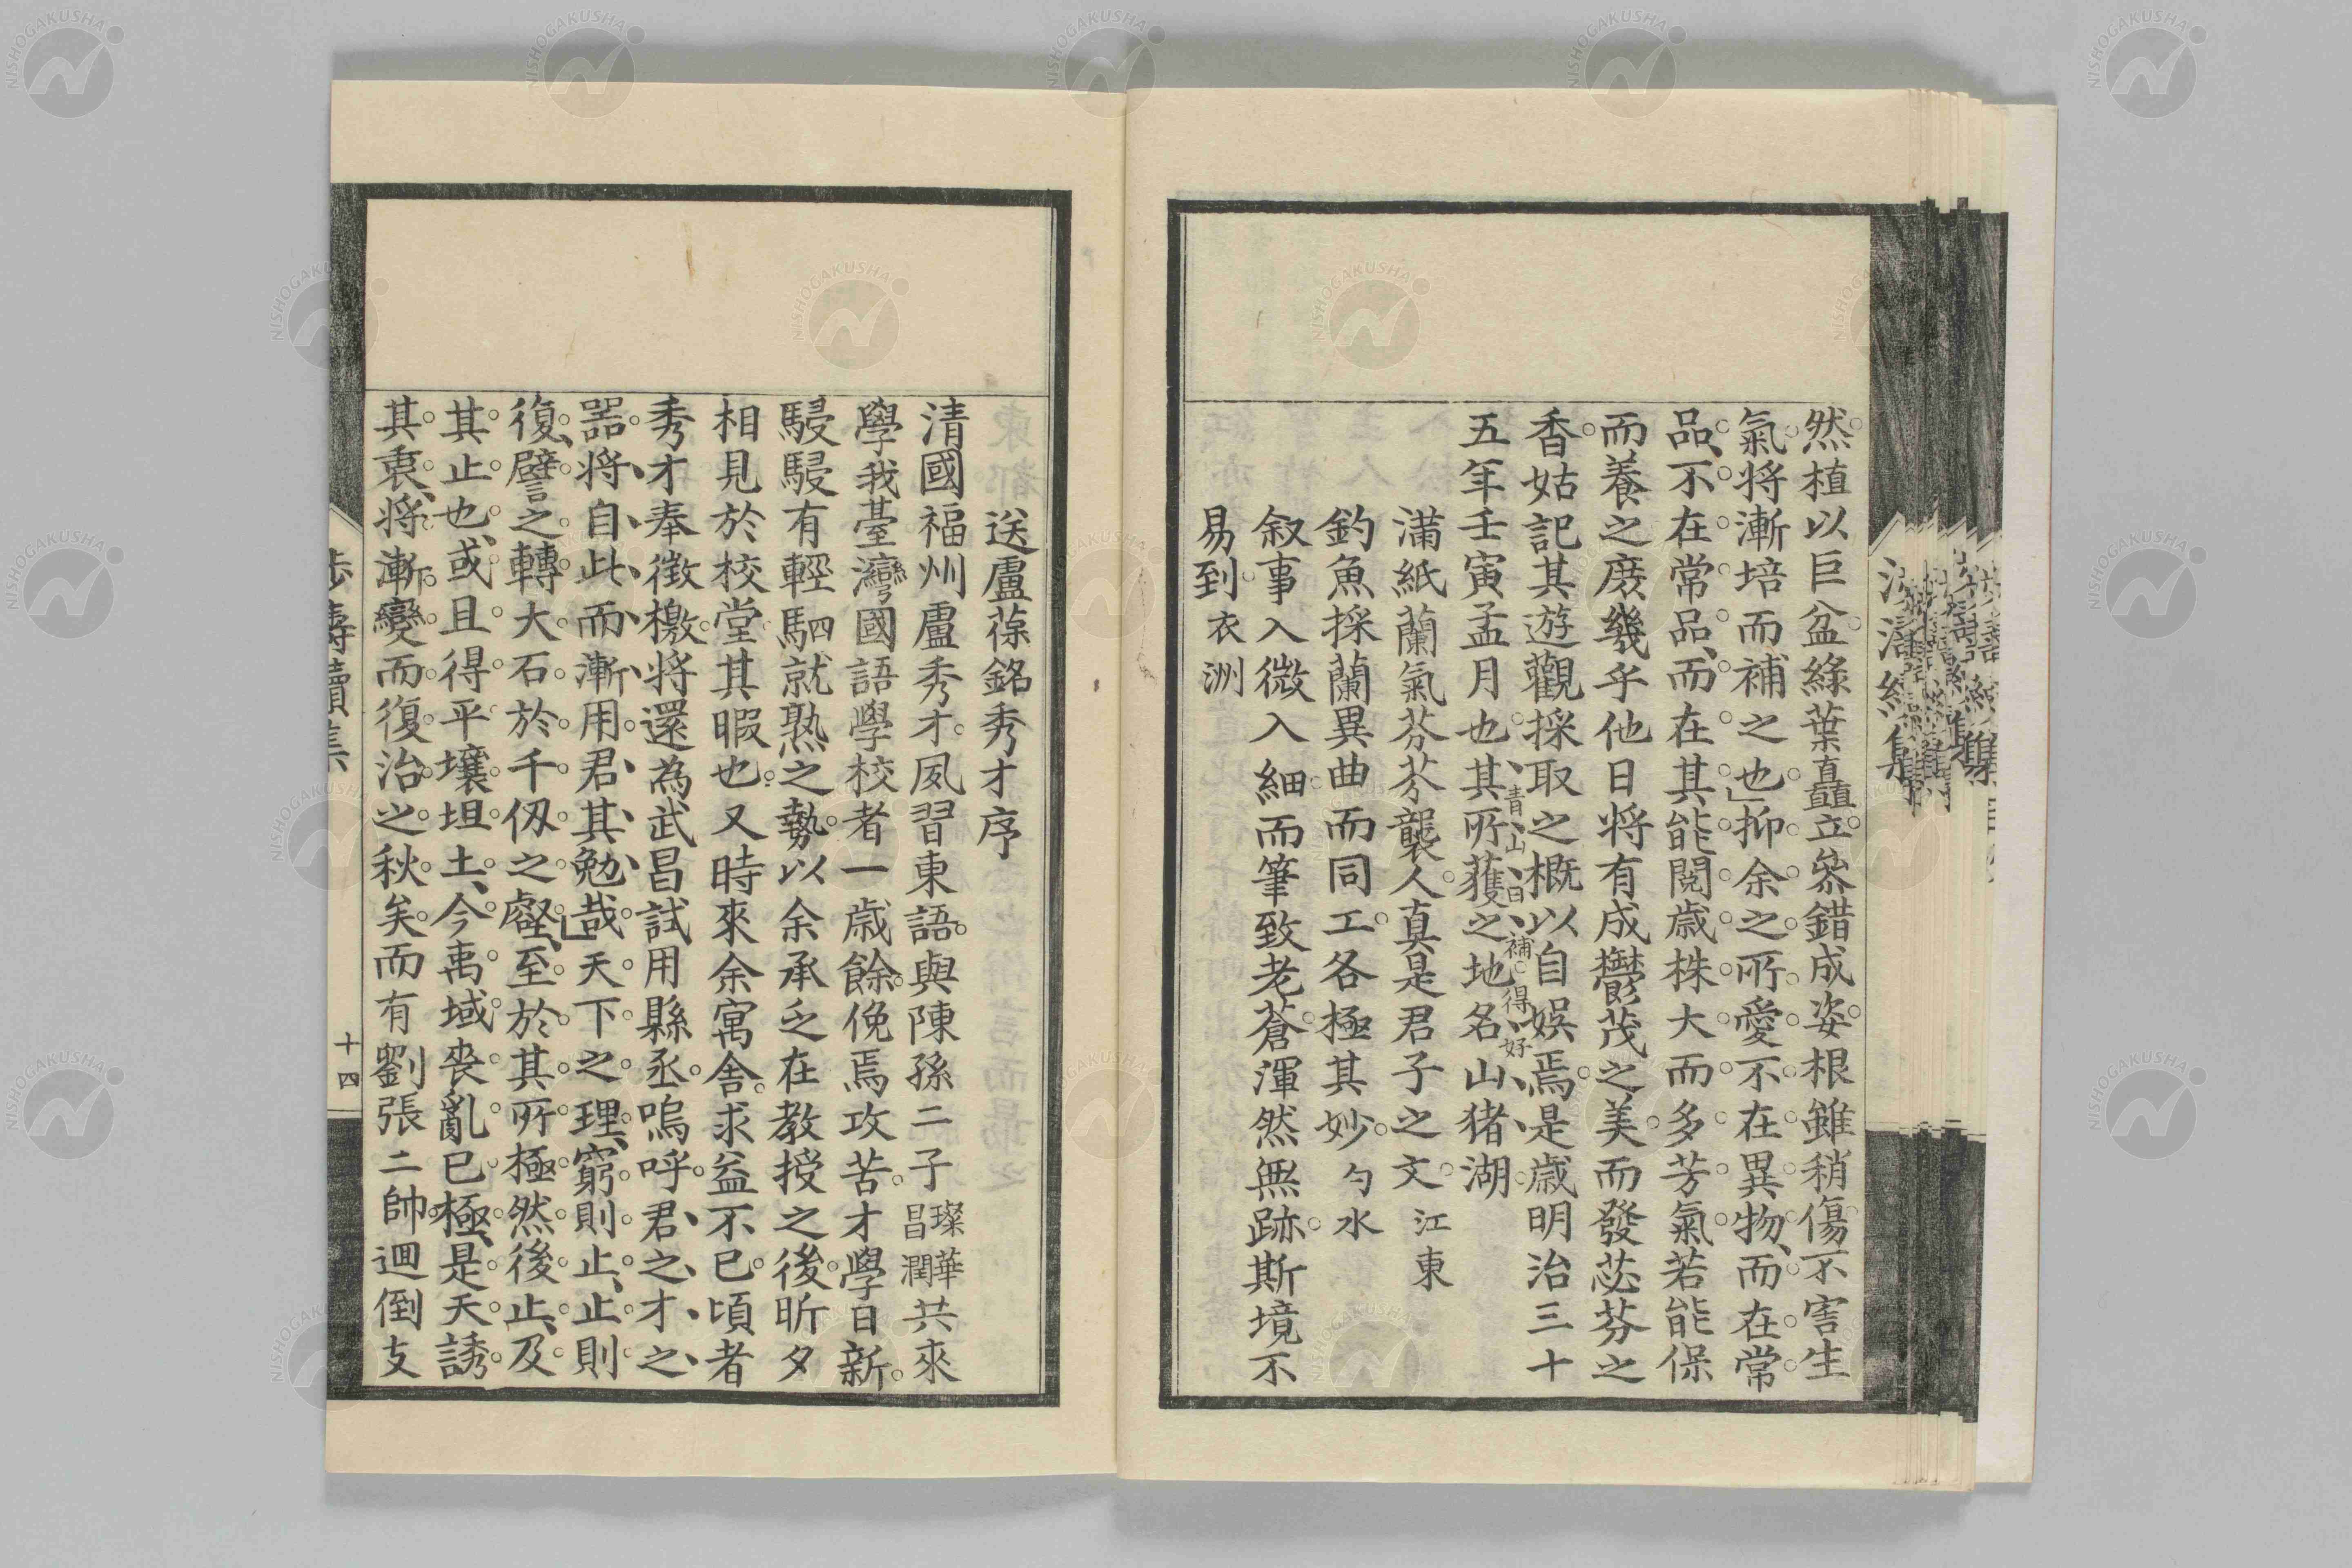 然植以巨盆綠葉矗立參錯成姿根雖稍傷不害生
氣將漸培而補之也」抑余之所愛不在異物、而在常
品、不在常品、而在其能閱歲株大而多芳氣若能保
而養之庶幾乎他日將有成鬱茂之美而發苾芬之
香姑記其遊觀採取之概以自娛焉是歲明治三十
五年壬寅孟月也其所獲之地名山猪湖
青山曰補得好
滿紙蘭氣芬芬襲人真是君子之文 江東
釣魚採蘭異曲而同工各極其妙 勺水
叙事入微入細而筆致老蒼渾然無跡斯境不
易到 衣洲
送盧葆銘秀才序
清國福州盧秀才夙習東語與陳孫二子 璨華 昌潤 共來
學我臺灣國語學校者一歲餘俛焉攻苦才學日新
駸駸有輕駟就熟之勢以余承乏在教授之後昕夕
相見於校堂其暇也又時來余寓舍求益不已頃者
秀才奉徵檄將還為武昌試用縣丞嗚呼君之才之
器將自此而漸用君其勉哉」天下之理、窮則止、止則
復、譬之轉大石於千仭之壑、至於其所極然後止、及
其止也、或且得平壤坦土、今禹域喪亂已極、是天誘
其衷、將漸變而復治之秋矣而有劉張二帥迴倒支
十四
NISHOGAKUSHA